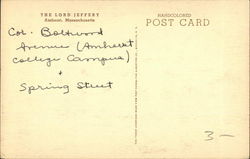 THE LORD JEFFERY
Amherst, Massachusetts
HANDCOLORED
POST CARD
Cor. Boltwood
Avenue (Amherst
College Campus)
+
Spring Street
3—